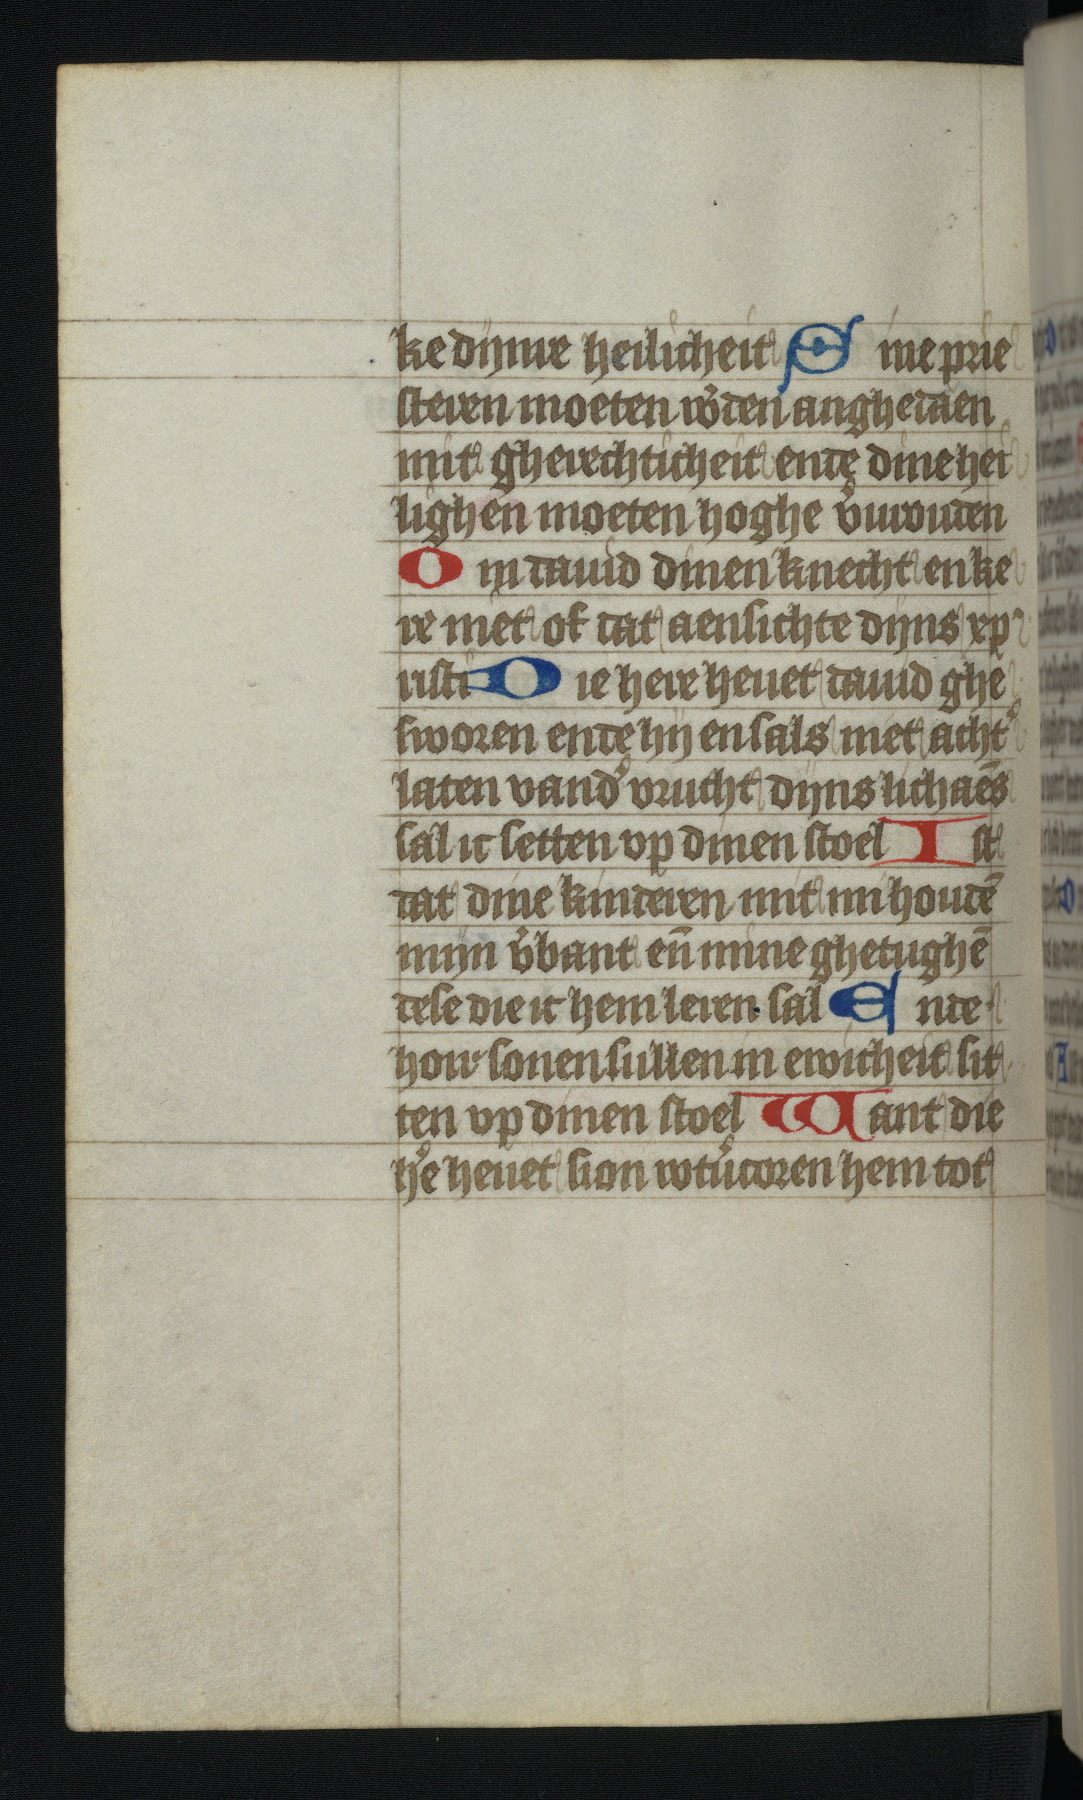 ke dijnre heilicheit Dine prie
steren moeten wˀden anghedaen
mit gherechticheit ende dine hei
lighen moeten hoghe vˀurouden
Om dauid dinen knecht en ke
re niet of dat aensichte dijns xp
risti Die here heuet dauid ghe
sworen ende hij en sals niet achtˀ
laten vandˀ vrucht dijns lichaēs
sal ic setten vp dinen stoel Ist
dat dine kinderen mit mi houdē
mijn vˀbant eñ mine ghetughē
dese die ic hem leren sal Ende
hoir sonen sullen in ewicheit sit
ten vp dinen stoel Want die
hˀe heuet sion wtuˀcoren hem tot